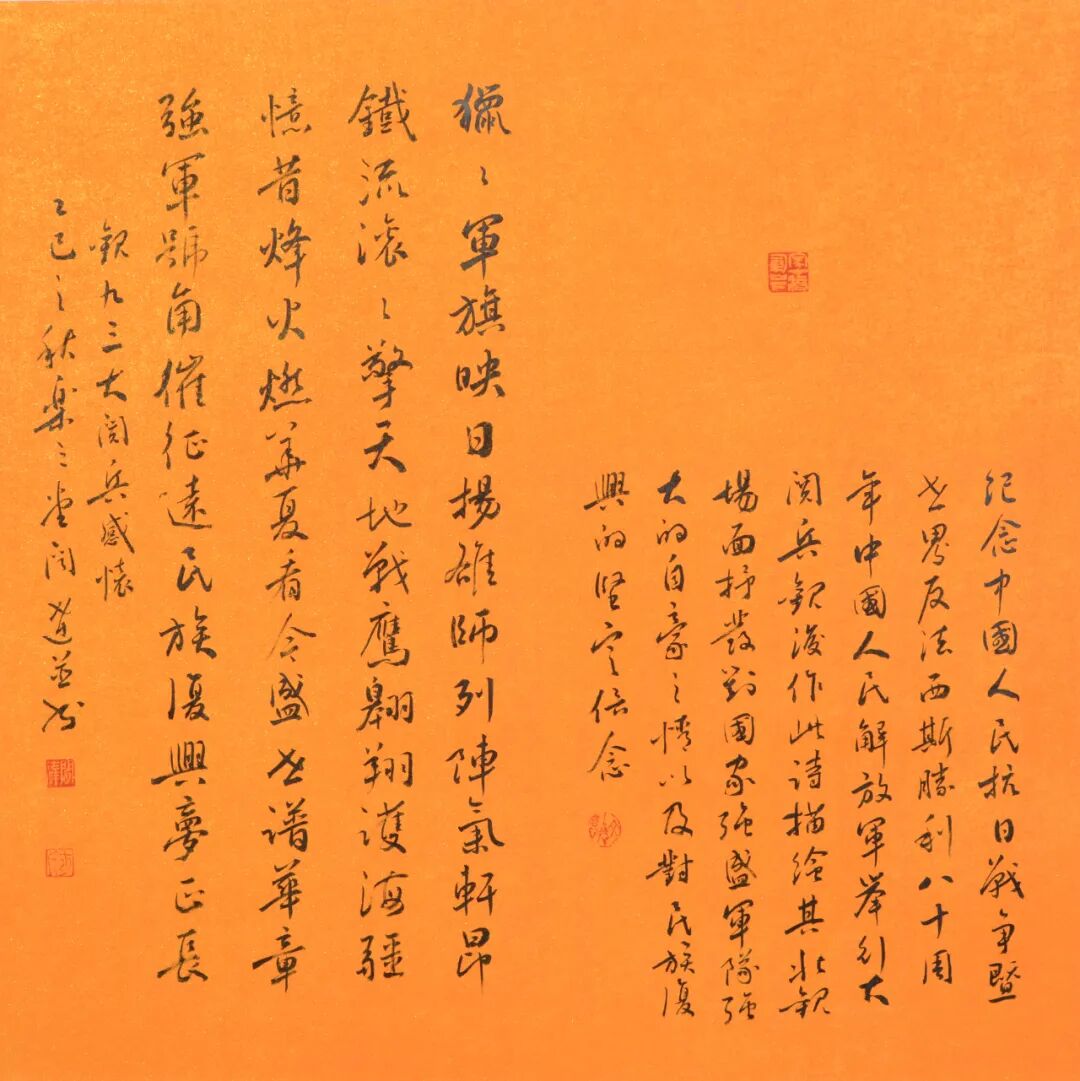 紀念中國人民抗日戰争暨
世界反法西斯勝利八十周
年中國人民解放軍舉行大
閲兵觀後作此詩描繪其壯觀
場面抒發對國家强盛軍隊强
大的自豪之情以及對民族復
興的堅定信念
獵々軍旗映日揚雄師列陣氣軒昂
鐵流滚々擎天地戰鷹翱翔護海疆
憶昔烽火燃華夏看今盛世譜華章
強軍號角催征遠民族復興夢正長
觀九三大閲兵感懷
乙巳之秋樂之堂閆道並书